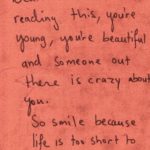 reading this, you're
young, you're beautiful
and someone out
there is crazy about
you.
So smile because
life is too short to